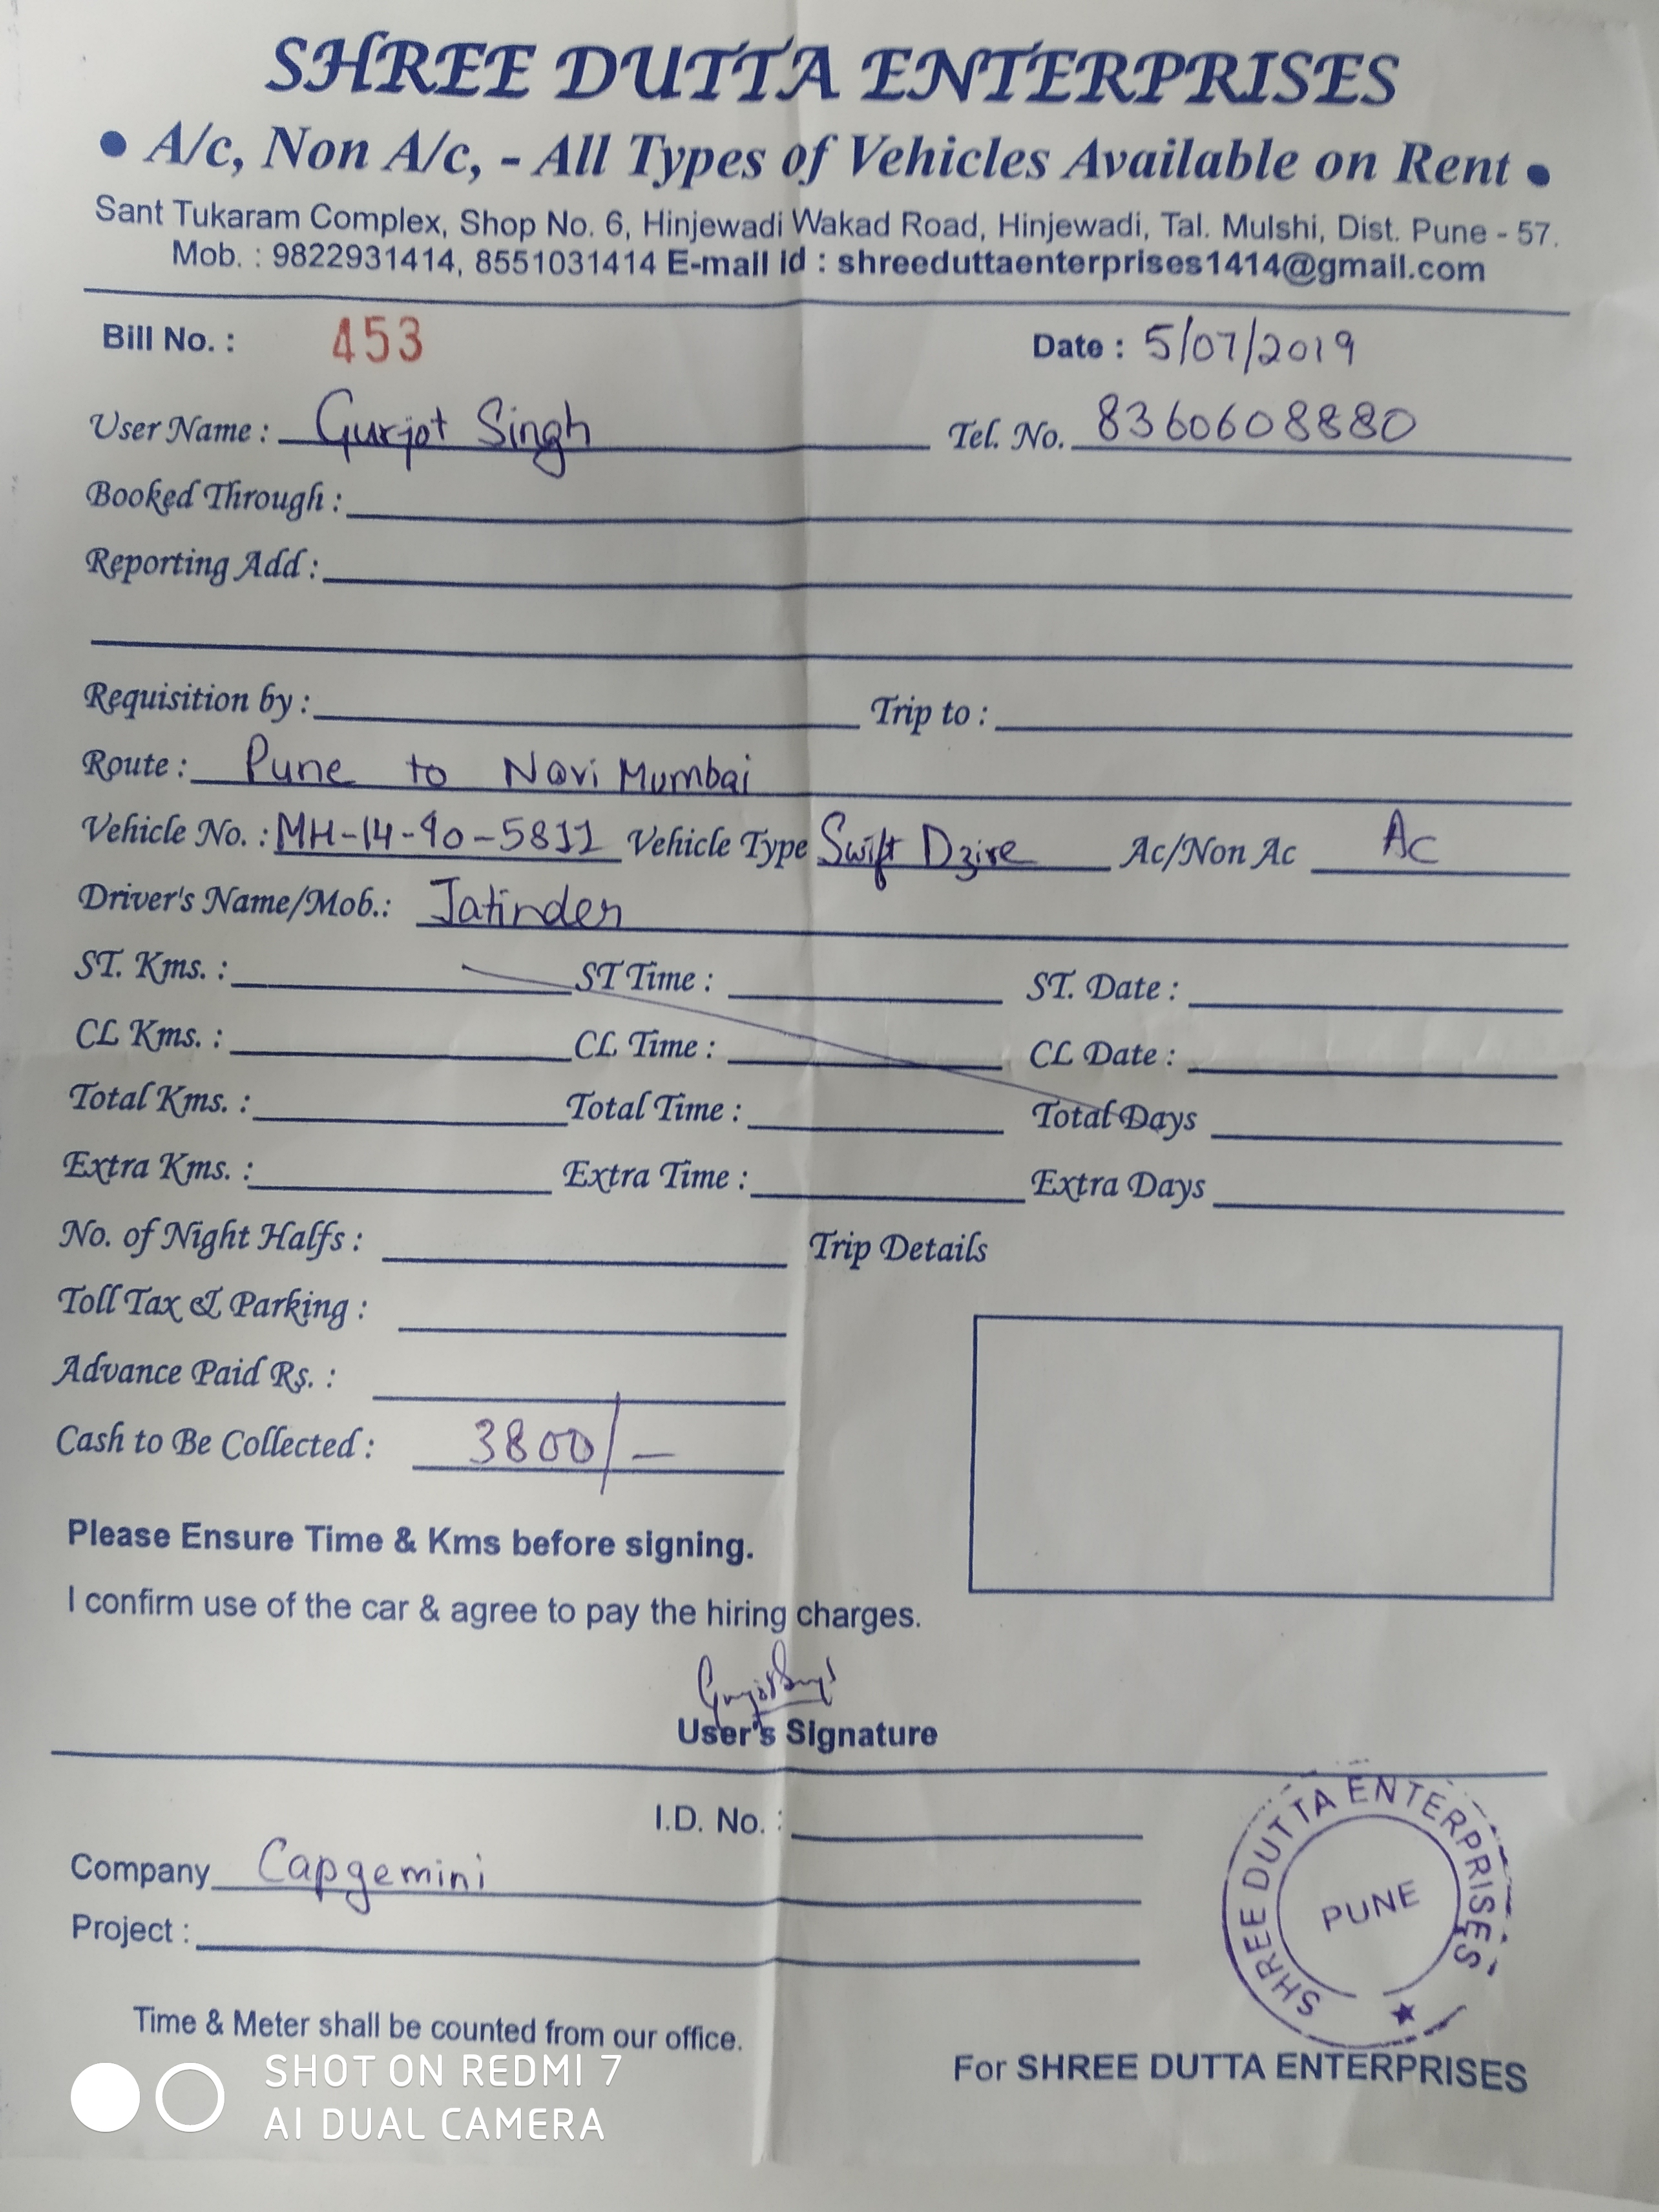 SHREE DUTTA ENTERPRISES
• A/c, Non A/c, - All Types of Vehicles Available on Rent •
Sant Tukaram Complex, Shop No. 6, Hinjewadi Wakad Road, Hinjewadi, Tal. Mulshi, Dist. Pune - 57.
Mob. : 9822931414, 8551031414 E-mail id : shreeduttaenterprises1414@gmail.com
Bill No. : 453 Date : 5/07/2019
User Name : Gurjot Singh Tel. No. 8360608880
Booked Through :
Reporting Add :
Requisition by : Trip to :
Route : Pune to Navi Mumbai
Vehicle No. : MH-14-90-5811 Vehicle Type Swift Dzire Ac/Non Ac AC
Driver's Name/Mob.: Jatinder
ST. Kms. : ST Time : ST. Date :
CL Kms. : CL Time : CL Date :
Total Kms. : Total Time : Total Days
Extra Kms. : Extra Time : Extra Days
No. of Night Halfs : Trip Details
Toll Tax & Parking :
Advance Paid Rs. :
Cash to Be Collected : 3800/-
Please Ensure Time & Kms before signing.
I confirm use of the car & agree to pay the hiring charges.
User's Signature
I.D. No. :
Company Capgemini
Project :
SHREE DUTTA ENTERPRISES
PUNE
Time & Meter shall be counted from our office.
For SHREE DUTTA ENTERPRISES
SHOT ON REDMI 7
AI DUAL CAMERA